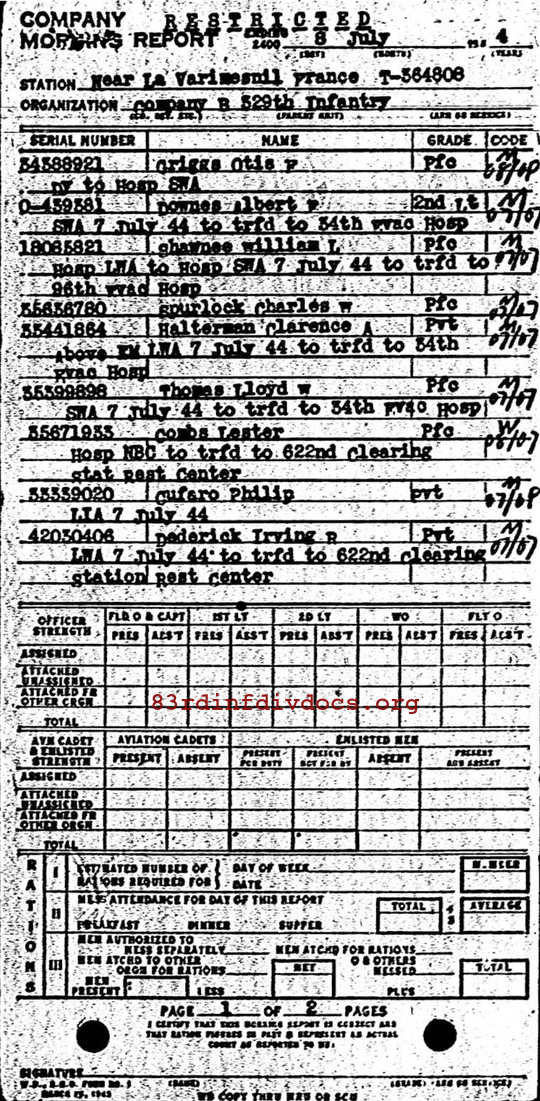 COMPANY RESTRICTED
MORNING REPORT ENDING 2400 8 July 194 4
(DAY) (MONTH) (YEAR)
STATION Near La Varimesnil France T-364808
ORGANIZATION Company B 329th Infantry
SERIAL NUMBER NAME GRADE CODE
34588921 Griggs Otis F Pfc
Dy to Hosp SWA
O-459381 Downes Albert 2nd Lt
SWA 7 July 44 to trfd to 34th Evac Hosp
18065821 Shawnee William L Pfc
Hosp LWA to Hosp SWA 7 July 44 to trfd to
96th Evac Hosp
35636780 Spurlock Charles W Pfc
35441864 Halterman Clarence A Pvt
Above EM LWA 7 July 44 to trfd to 34th
Evac Hosp
35399898 Thomas Lloyd W Pfc
SWA 7 July 44 to trfd to 34th Evac Hosp
35671933 Combs Lester Pfc
Hosp NBC to trfd to 622nd Clearing
Stat Rest Center
33339020 Cufaro Philip Pvt
LIA 7 July 44
42030406 Dederick Irving R Pvt
LWA 7 July 44 to trfd to 622nd Clearing
Station Rest Center
OFFICER STRENGTH FLD O & CAPT 1ST LT 2D LT WO FLT O
PRES ABS'T PRES ABS'T PRES ABS'T PRES ABS'T PRES ABS'T
ASSIGNED
ATTACHED UNASSIGNED
ATTACHED FR OTHER ORGN
83rdinfdivdocs.org
TOTAL
AVN CADET & ENLISTED STRENGTH AVIATION CADETS ENLISTED MEN
PRESENT ABSENT PRESENT FOR DUTY PRESENT NOT FOR DY ABSENT PRESENT AND ABSENT
ASSIGNED
ATTACHED UNASSIGNED
ATTACHED FR OTHER ORGN
TOTAL
RATIONS
I ESTIMATED NUMBER OF RATIONS REQUIRED FOR DAY OF WEEK DATE
II MESS ATTENDANCE FOR DAY OF THIS REPORT TOTAL AVERAGE
BREAKFAST DINNER SUPPER
III MEN AUTHORIZED TO MESS SEPARATELY MEN ATCHD FOR RATIONS
MEN ATCHD TO OTHER ORGN FOR RATIONS NET O & OTHERS MESSED TOTAL
MEN PRESENT LESS PLUS
PAGE 1 OF 2 PAGES
I CERTIFY THAT THIS MORNING REPORT IS CORRECT AND
THAT RATION FIGURES IN PART III REPRESENT AN ACTUAL
COUNT AS REPORTED TO ME:
SIGNATURE
W.D., A.G.O. FORM NO. 1
MARCH 19, 1943
(NAME) (GRADE)
WD COPY THRU MRU OR SCU